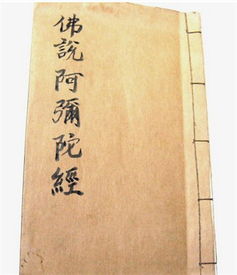 佛說阿彌陀經